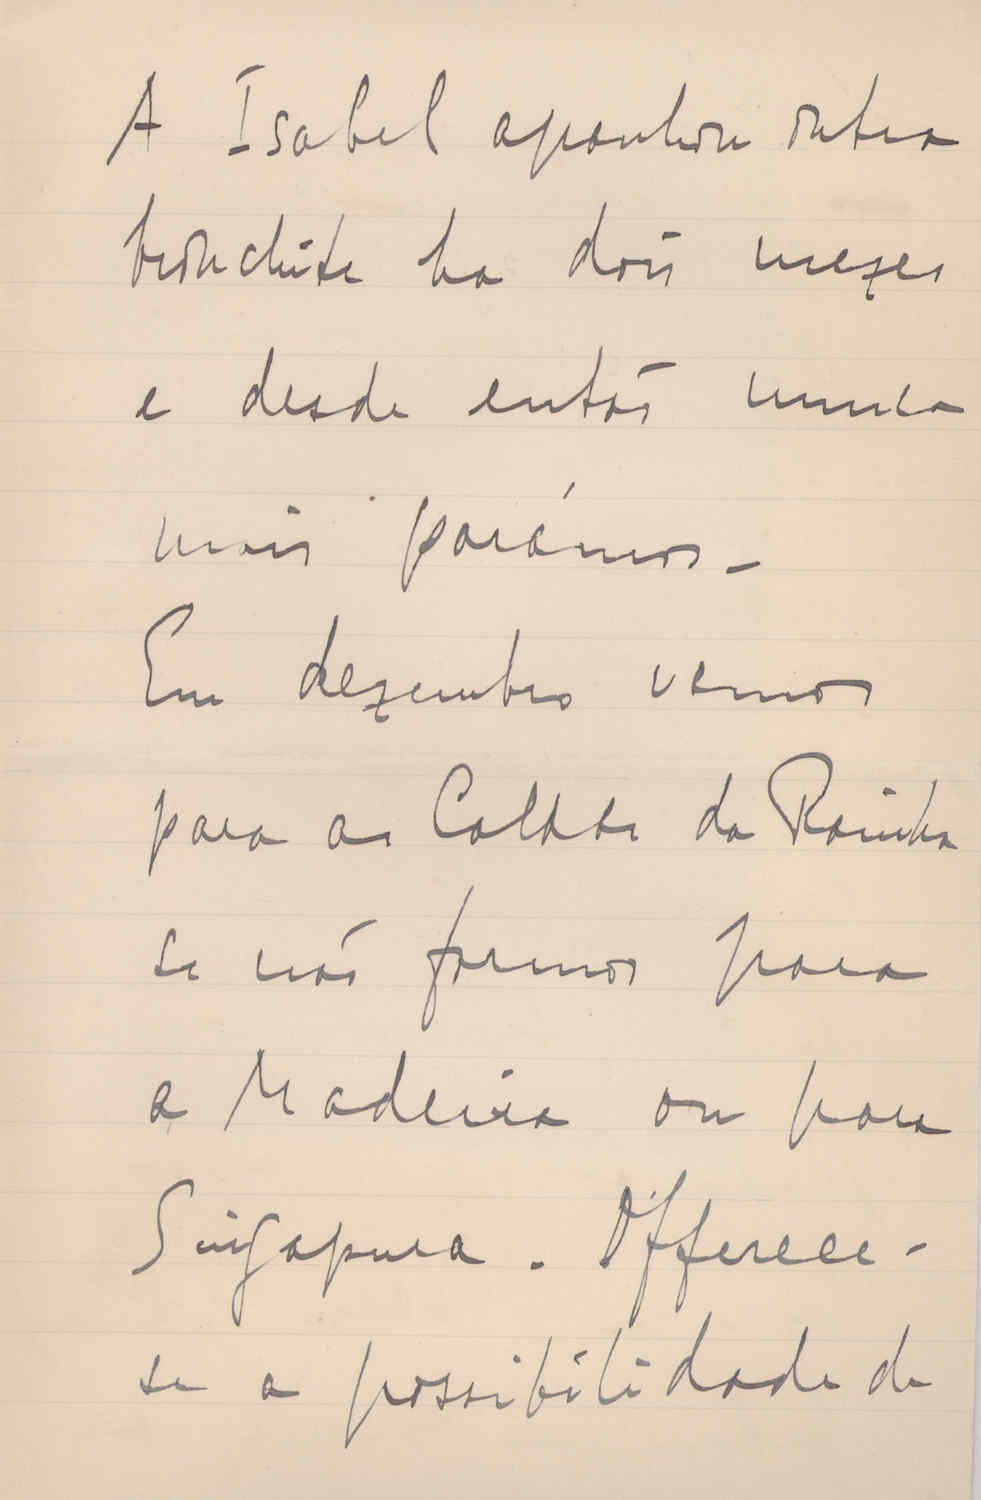 A Isabel apanhou outra
bronchite ha dois mezes
e desde então nunca
mais parámos -
Em dezembro vamos
para as Caldas da Rainha
se não formos para
a Madeira ou para
Singapura. Offerece-
se a possibilidade de